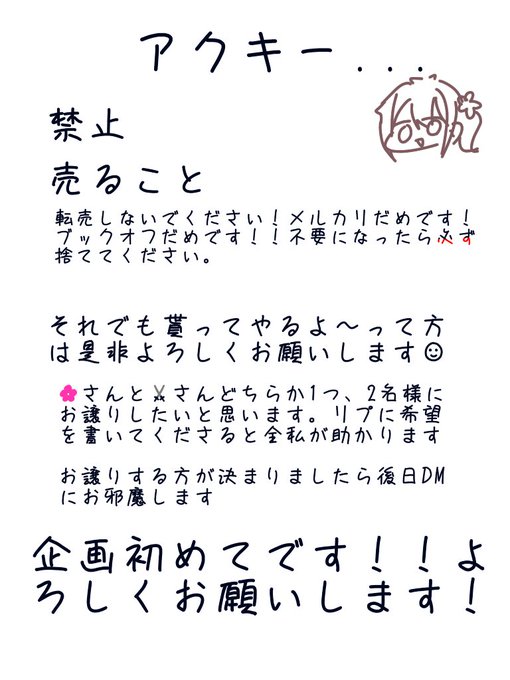 アクキー...
禁止
売ること
転売しないでください！メルカリだめです！
ブックオフだめです！！不要になったら必ず
捨ててください。
それでも貰ってやるよ〜って方
は是非よろしくお願いします☺
🌸さんと✂さんどちらか1つ、2名様に
お譲りしたいと思います。リプに希望
を書いてくださると全私が助かります
お譲りする方が決まりましたら後日DM
にお邪魔します
企画初めてです！！よ
ろしくお願いします！